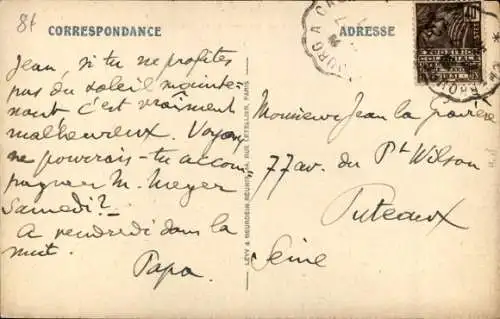 8f
CORRESPONDANCE
Jean, si tu ne profites
pas du soleil mainte-
nant c'est vraiment
malheureux. Voyons
ne pourrais-tu accom
pagner M. Meyer
Samedi?-
A vendredi dans la
nuit.
Papa.
LÉVY & NEURDEIN RÉUNIS, 44, RUE LETELLIER, PARIS
ADRESSE
Monsieur Jean la
77 av. du Pt Wilson
Puteaux
Seine